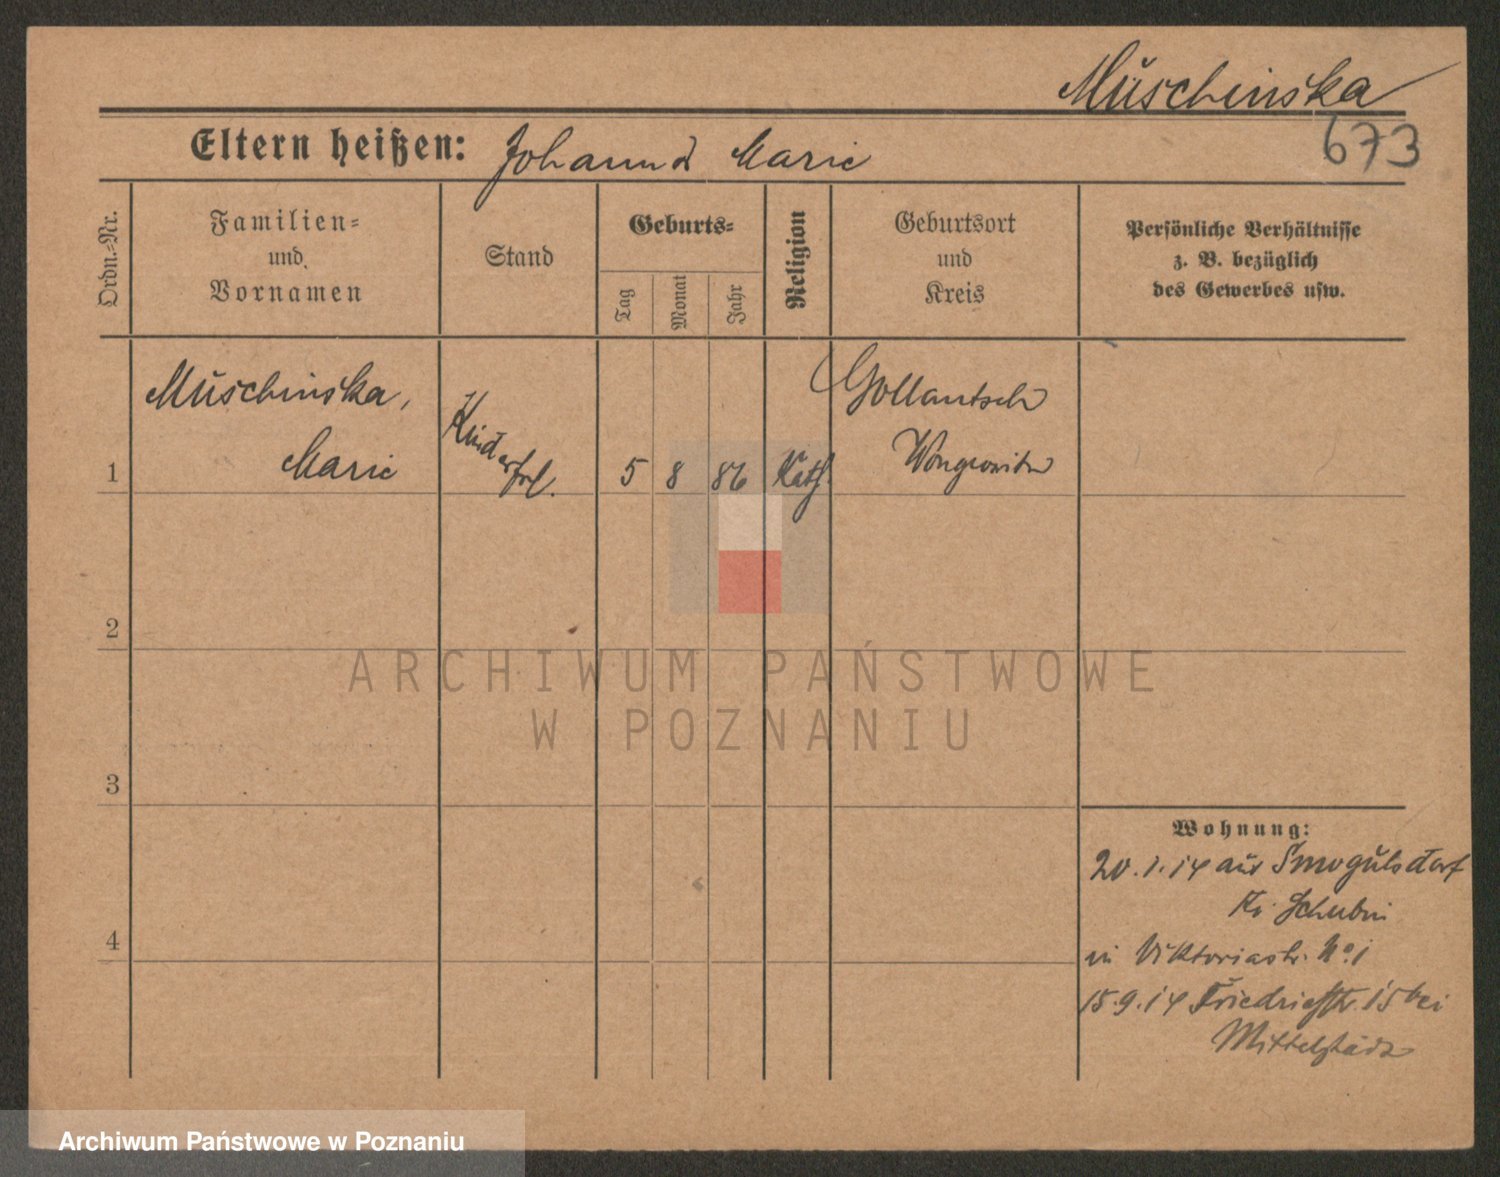 Muschinska
673
Eltern heißen: Johann u Marie
Ordn.-Nr.
Familien-
und
Vornamen
Stand
Geburts-
Tag
Monat
Jahr
Religion
Geburtsort
und
Kreis
Persönliche Verhältnisse
z. B. bezüglich
des Gewerbes usw.
1
Muschinska,
Marie
Kinderfrl.
5 8 86 Kath.
Gollantsch
Wongrowitz
2
ARCHIWUM PAŃSTWOWE
W POZNANIU
3
4
Wohnung:
20.1.14 aus Smogulsdorf
Kr. Schubin
in Viktoriastr. No. 1
15.9.14 Friedrichstr. 15 bei
Mittelstädt
Archiwum Państwowe w Poznaniu